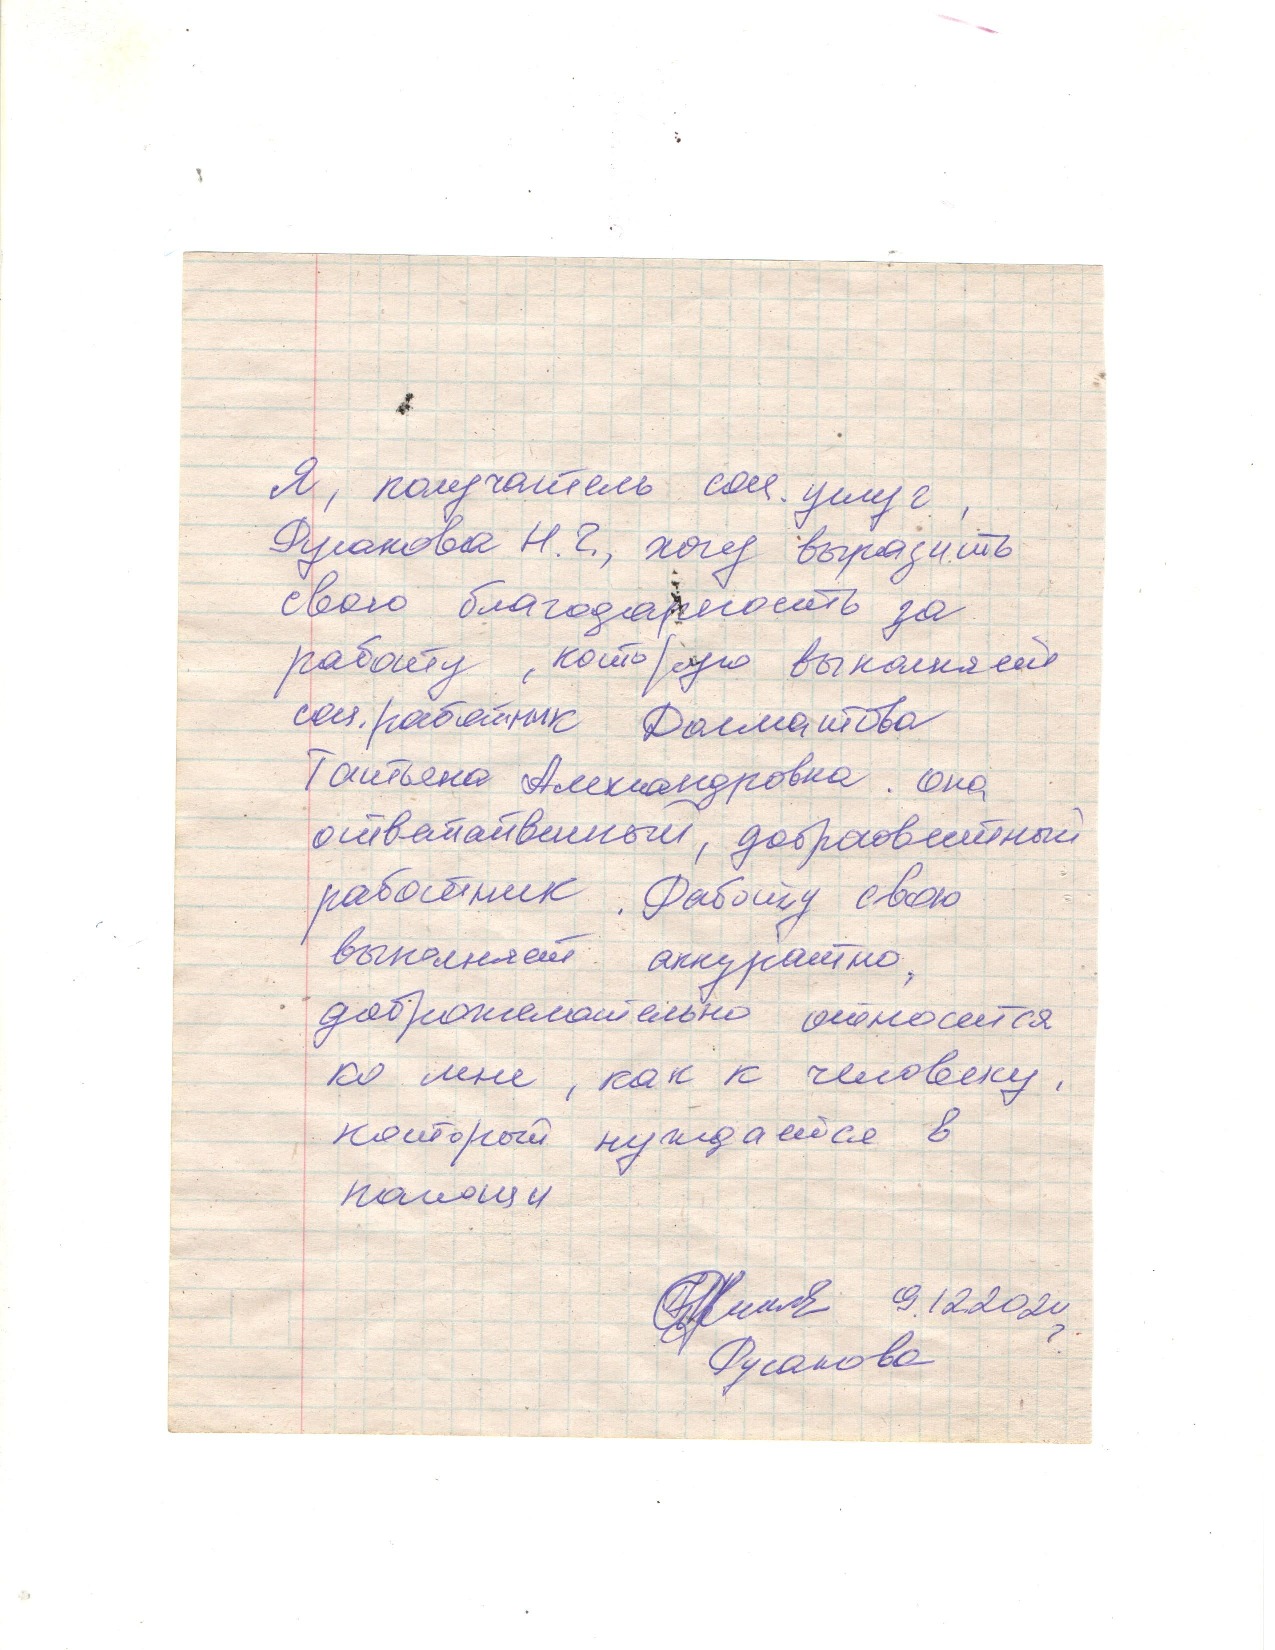 Я, получатель соц. услуг,
Русакова Н. Г., хочу выразить
свою благодарность за
работу, которую выполняет
соц. работник Долматова
Татьяна Александровна. Она
ответственный, добросовестный
работник. Работу свою
выполняет аккуратно,
доброжелательно относится
ко мне, как к человеку,
который нуждается в
помощи
9.12.202
Русакова